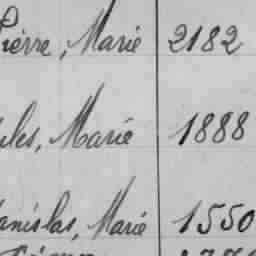 Pierre, Marie 2182
ules, Marie 1888
anislas, Marie 1550